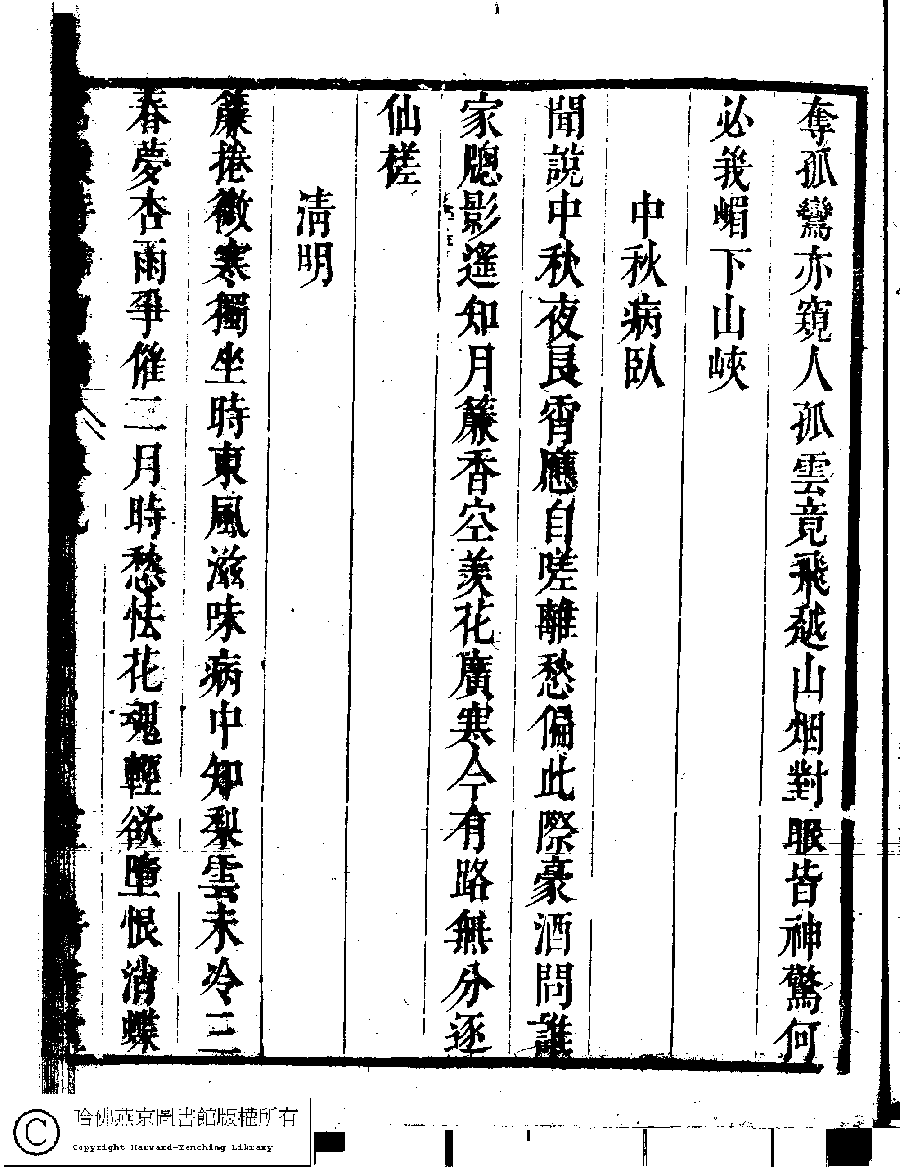 奪孤鸞亦窺人孤雲竟飛越山烟對眼皆神驚何
必峩嵋下山峽
中秋病臥
聞說中秋夜良宵應自嗟離愁偏此際豪酒問誰
家聽影遙知月簾香空羨花廣寒今有路無分逐
仙槎
清明
簾捲微寒獨坐時東風滋味病中知梨雲未冷三
春夢杏雨爭催二月時愁怯花魂輕欲墮恨消蝶
哈佛燕京圖書館版權所有
Copyright Harvard-Yenching Library